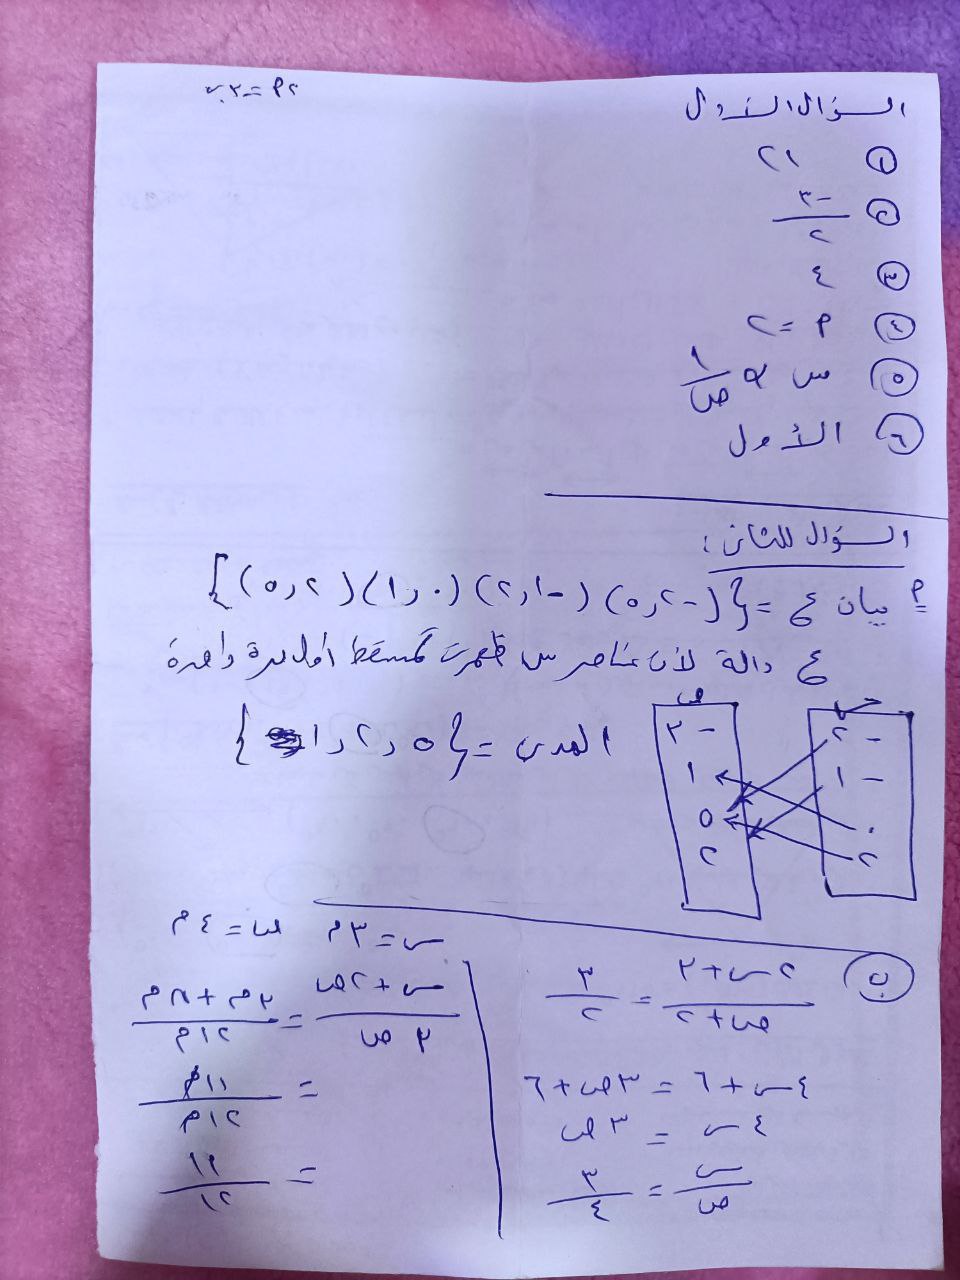 ٢م = ٣ب
السؤال الأول
١ ٢١
٢ -٣/٢
٣ ٤
٤ م = ٢
٥ س α ١/ص
٦ الأول
السؤال الثانى :
م بيان ع = {(-٢,٥) (-١,٢) (٠,١) (٢,٥)}
ع دالة لأن عناصر س ظهرت كمسقط أول مرة واحدة
ص
-٣
١
٥
٢
س
-٢
-١
٠
٢
المدى = {٥,٢,١}
ب
٢س+٣/ص+٢ = ٣/٢
٤س+٦ = ٣ص+٦
٤س = ٣ص
س/ص = ٣/٤
س=٣م ص=٤م
س+٢ص/٣ص = ٣م+٨م/١٢م
= ١١م/١٢م
= ١١/١٢